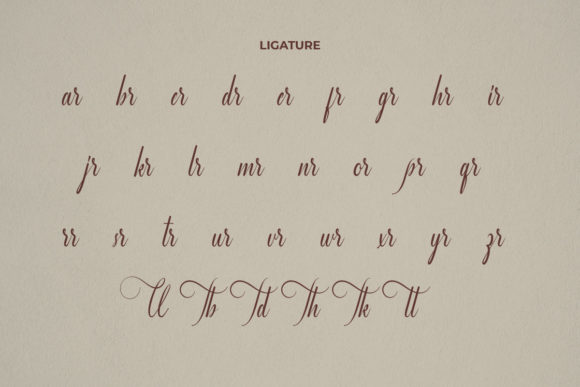 LIGATURE
ar br cr dr er fr gr hr ir
jr kr lr mr nr or pr qr
rr sr tr ur vr wr xr yr zr
Tb Td Th Tk tt